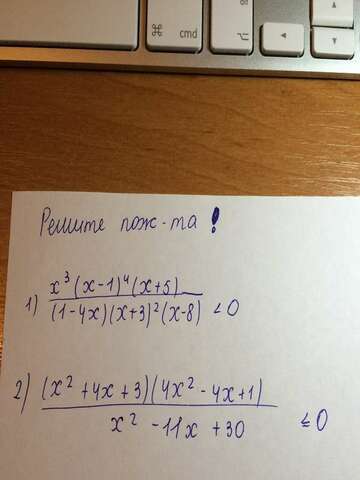 ⌘ cmd
⌥
◄
▲
▼
Решите пож-та!
1) x³(x-1)⁴(x+5) / (1-4x)(x+3)²(x-8) < 0
2) (x²+4x+3)(4x²-4x+1) / x²-11x+30 ≤ 0